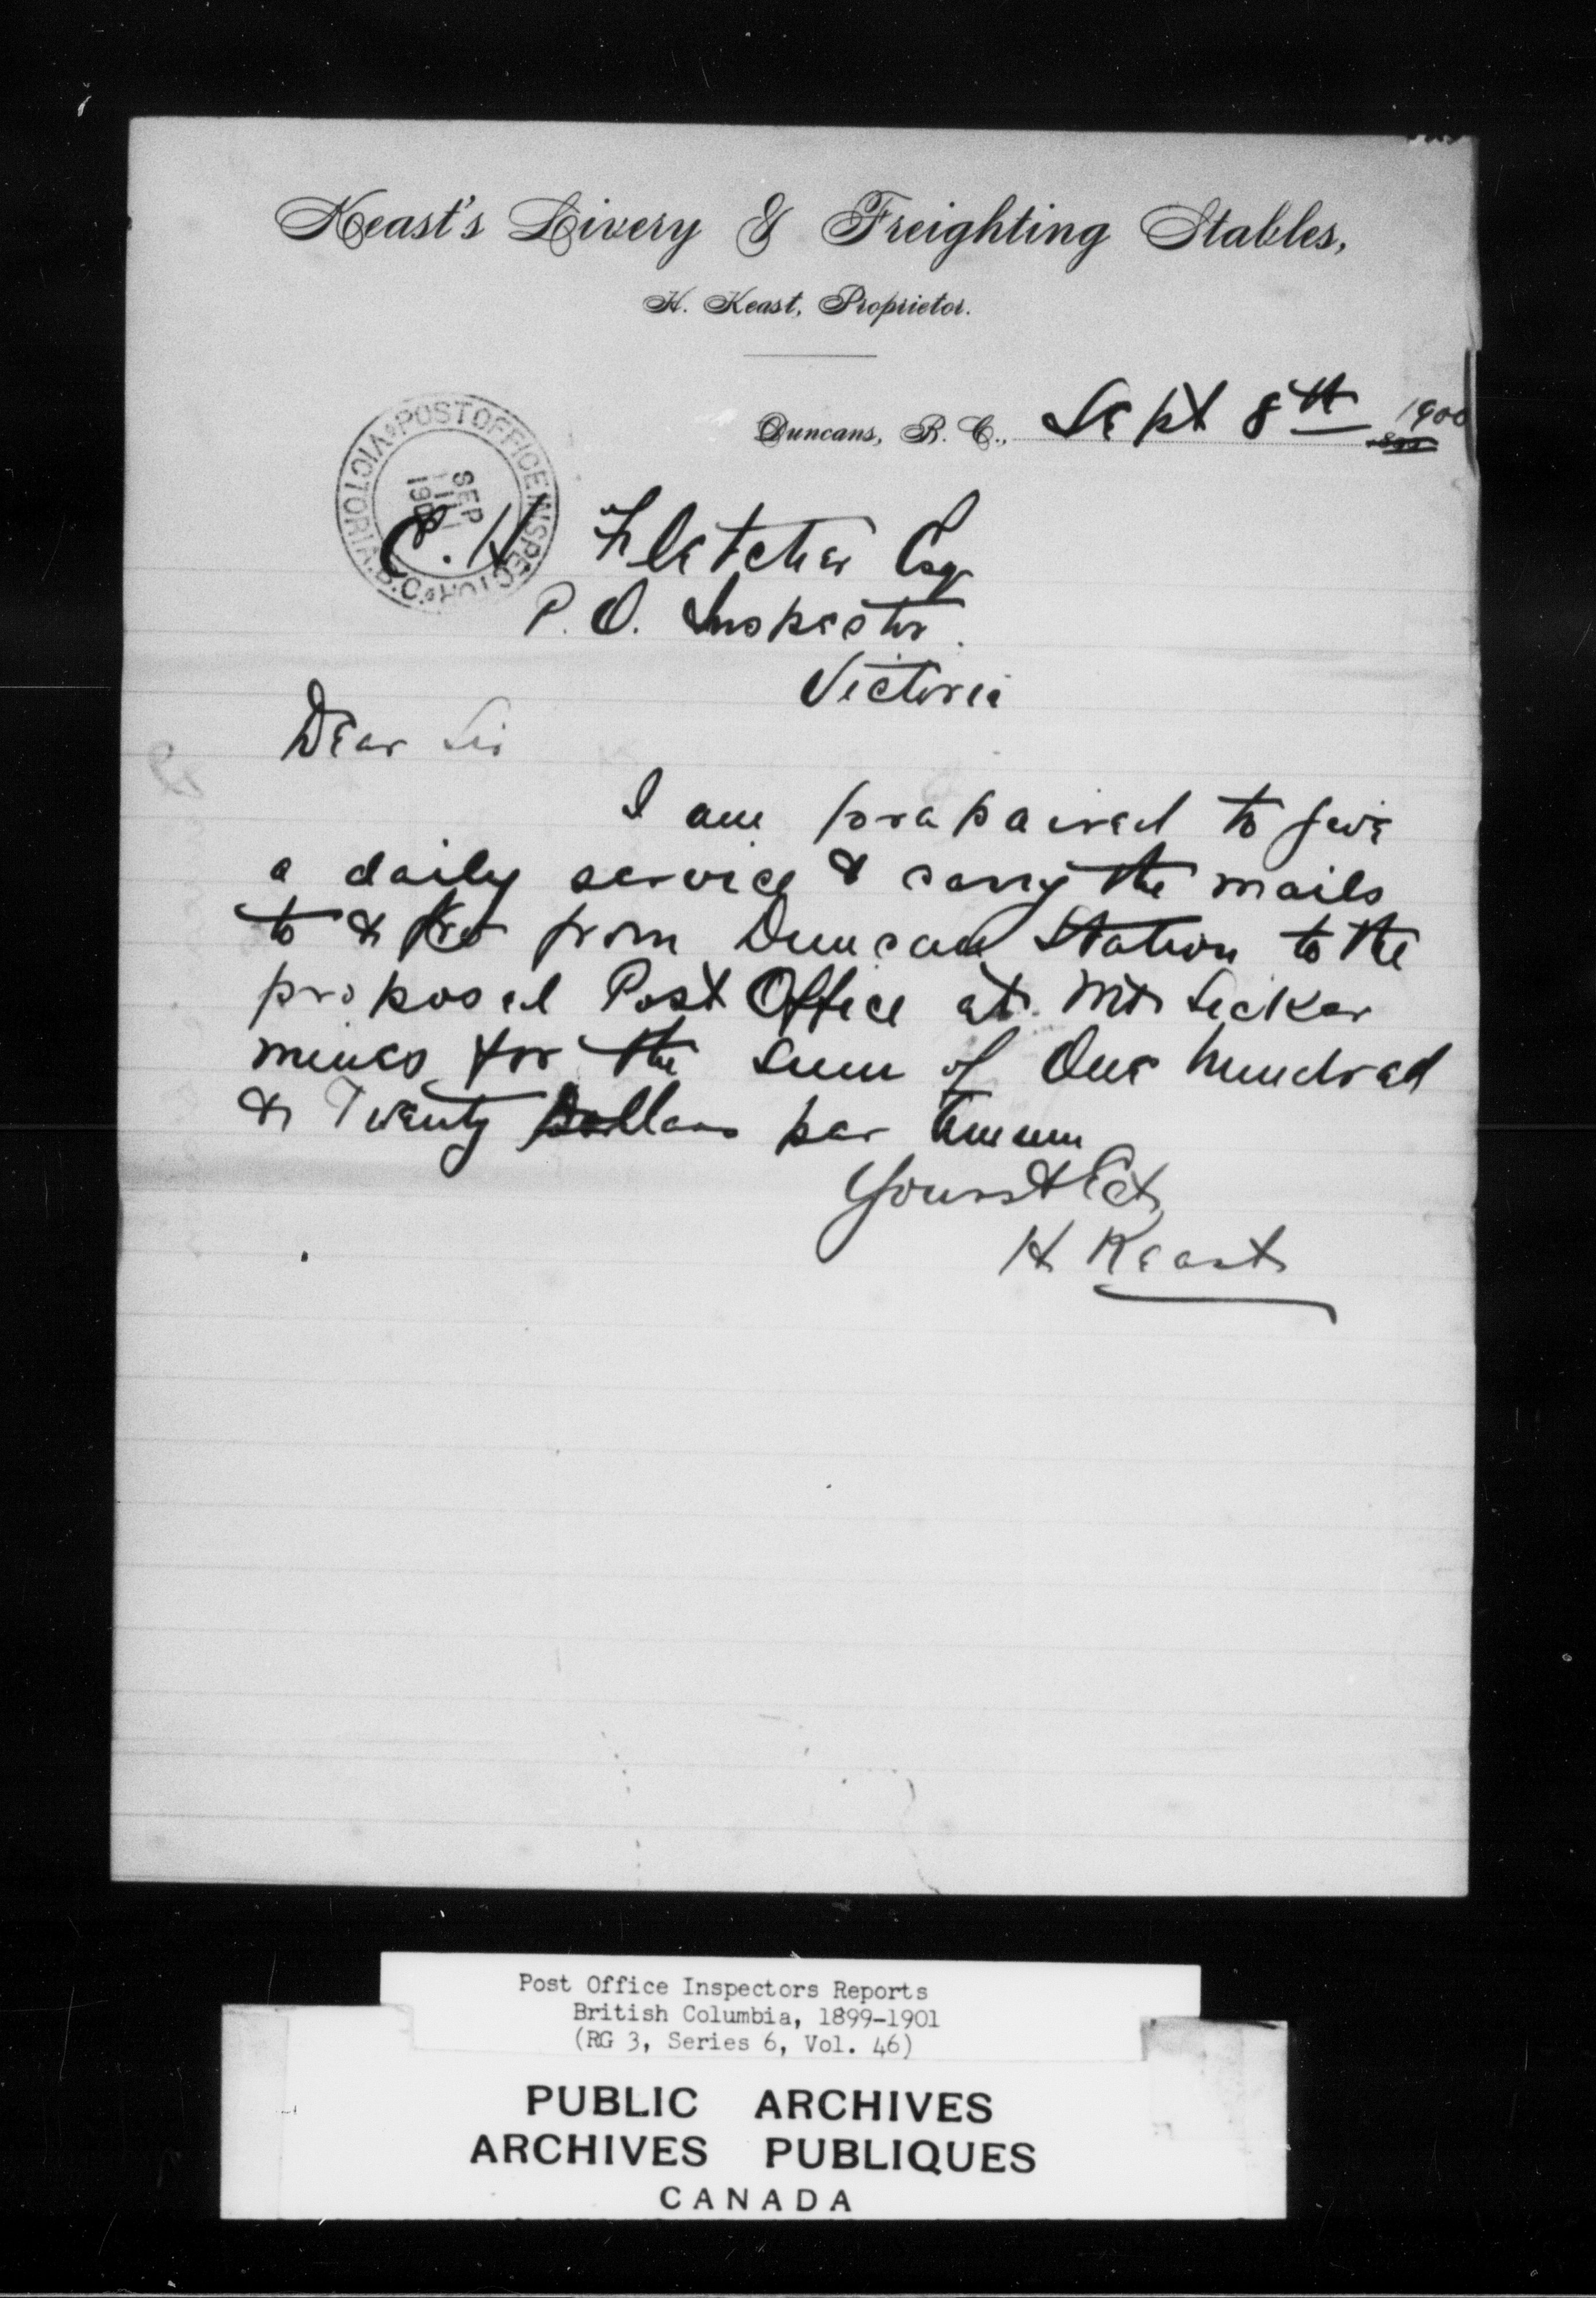 Keast's Livery & Freighting Stables,
H. Keast, Proprietor.
Duncans, B. C., Sept 8th 1900
POST OFFICE INSPECTOR VICTORIA B.C.
SEP
11
1900
C. H Fletcher Esq
P. O. Inspector.
Victoria
Dear Sir
I am prepaired to give
a daily service & carry the mails
to & fro from Duncan Station to the
proposed Post Office at Mt Sicker
mines for the sum of One hundred
& Twenty Dollars per Annum
Yours & Ect
H Keast
Post Office Inspectors Reports
British Columbia, 1899-1901
(RG 3, Series 6, Vol. 46)
PUBLIC ARCHIVES
ARCHIVES PUBLIQUES
CANADA